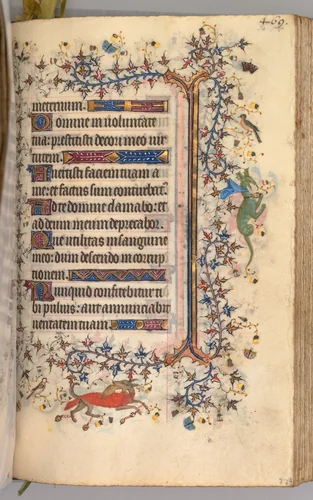 469.
ineternum.
Domine in voluntate
tua: prestitisti decori meo vir
tutem.
Avertisti faciem tuam a
me: et factus sum conturbat.
Ad te domine clamabo: et
ad deum meum deprecabor.
Que utilitas in sanguine
meo: dum descendo in corrup
tionem.
Nunquid confitebitur ti
bi pulvis: aut annunciabit
veritatem tuam.